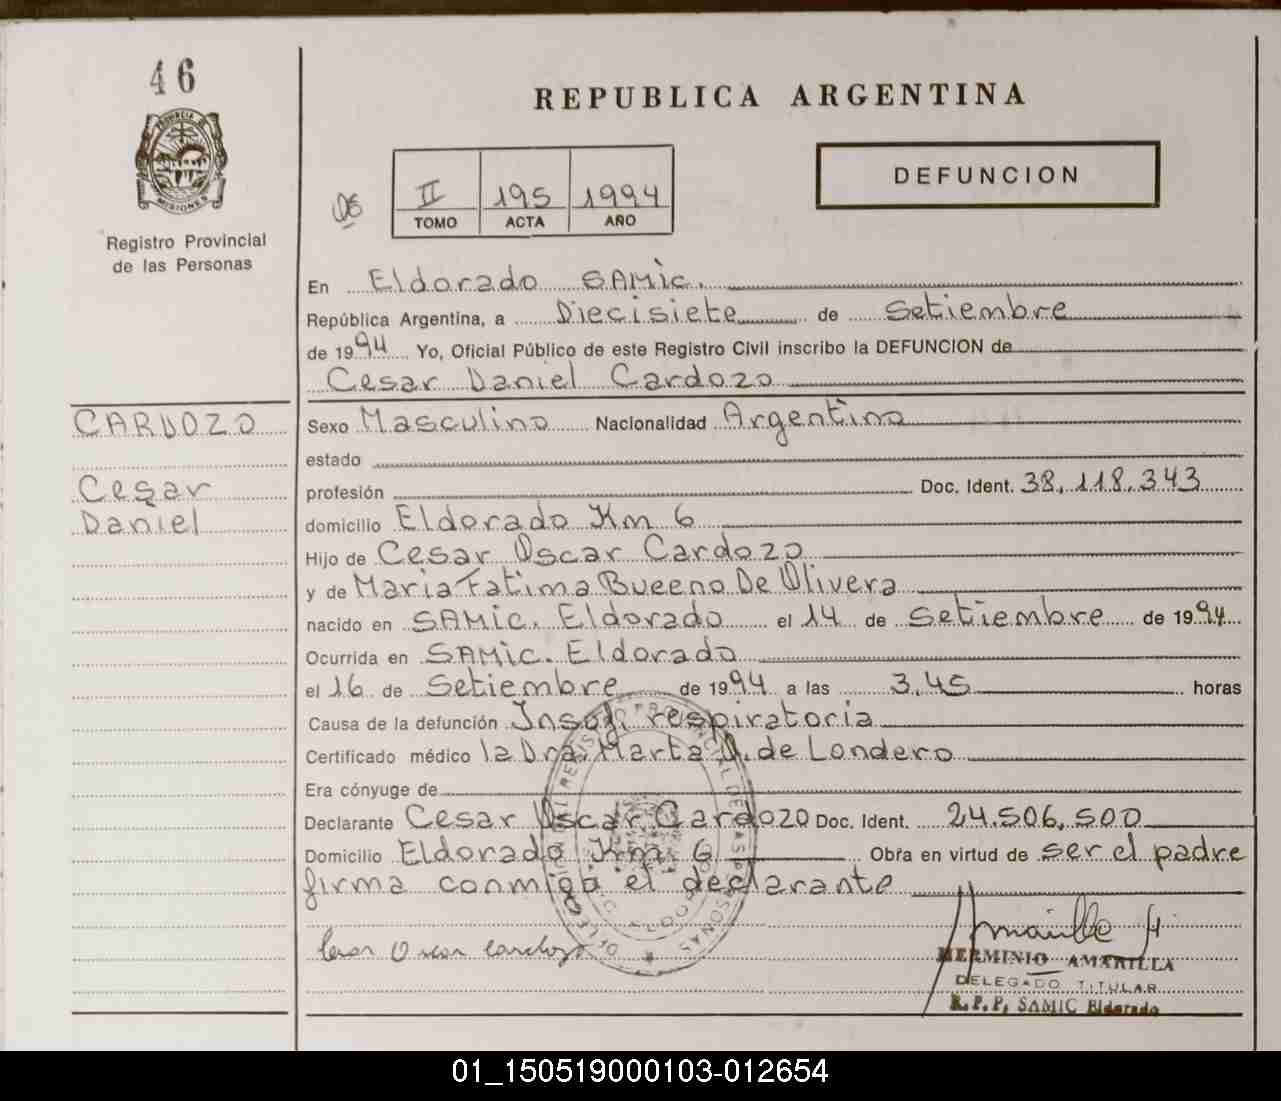 46
PROVINCIA DE
MISIONES
Registro Provincial
de las Personas
REPUBLICA ARGENTINA
II 195 1994
TOMO ACTA AÑO
DEFUNCION
En Eldorado SAMic.
República Argentina, a Diecisiete de Setiembre
de 1994 Yo, Oficial Público de este Registro Civil inscribo la DEFUNCION de
Cesar Daniel Cardozo
CARDOZO
Cesar
Daniel
Sexo Masculino Nacionalidad Argentina
estado
profesión Doc. Ident. 38.118.343
domicilio Eldorado Km 6
Hijo de Cesar Oscar Cardozo
y de Maria Fatima Bueeno De Olivera
nacido en SAMic. Eldorado el 14 de Setiembre de 1994
Ocurrida en SAMic. Eldorado
el 16 de Setiembre de 1994 a las 3,45 horas
Causa de la defunción Insuf. respiratoria
Certificado médico la Dra. Marta O. de Londero
Era cónyuge de
Declarante Cesar Oscar Cardozo Doc. Ident. 24.506.500
Domicilio Eldorado Km 6 Obra en virtud de ser el padre
firma conmigo el declarante
Cesar Oscar Cardozo
Amarilla H
HERMINIO AMARILLA
DELEGADO TITULAR
R.P.P. SAMIC Eldorado
01_150519000103-012654